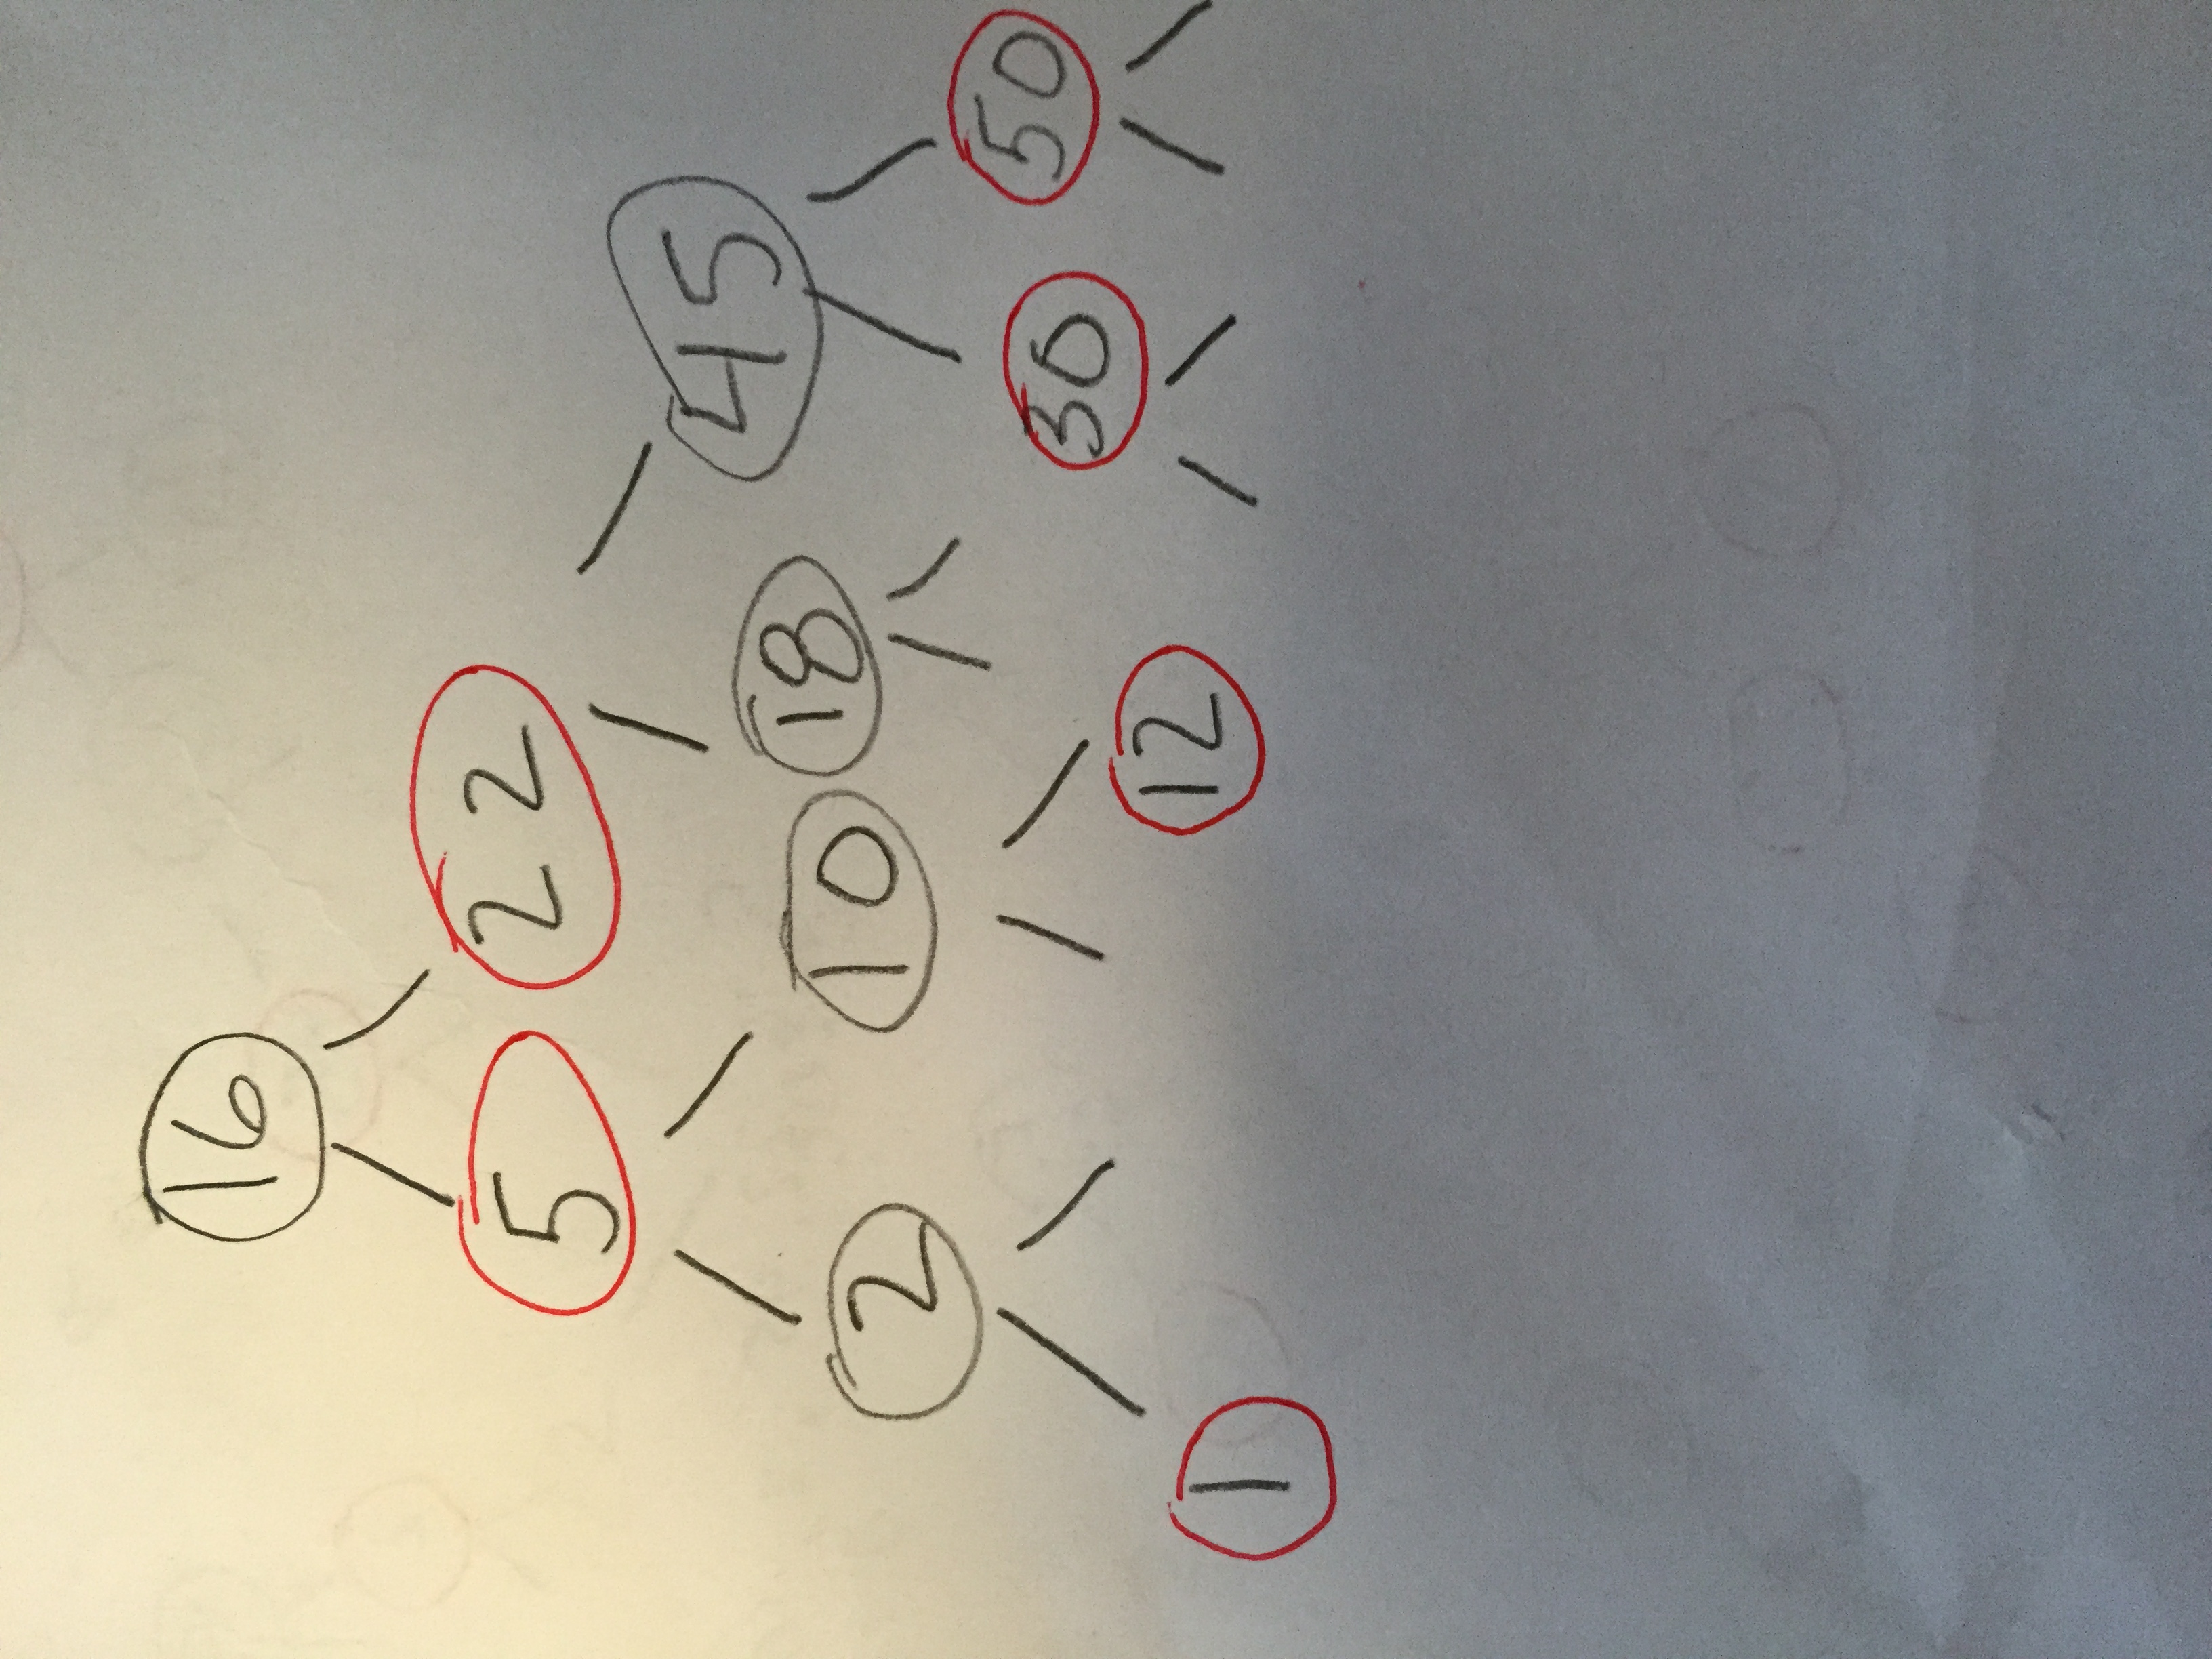 16
5 22
2 10 18 45
1 12 30 50